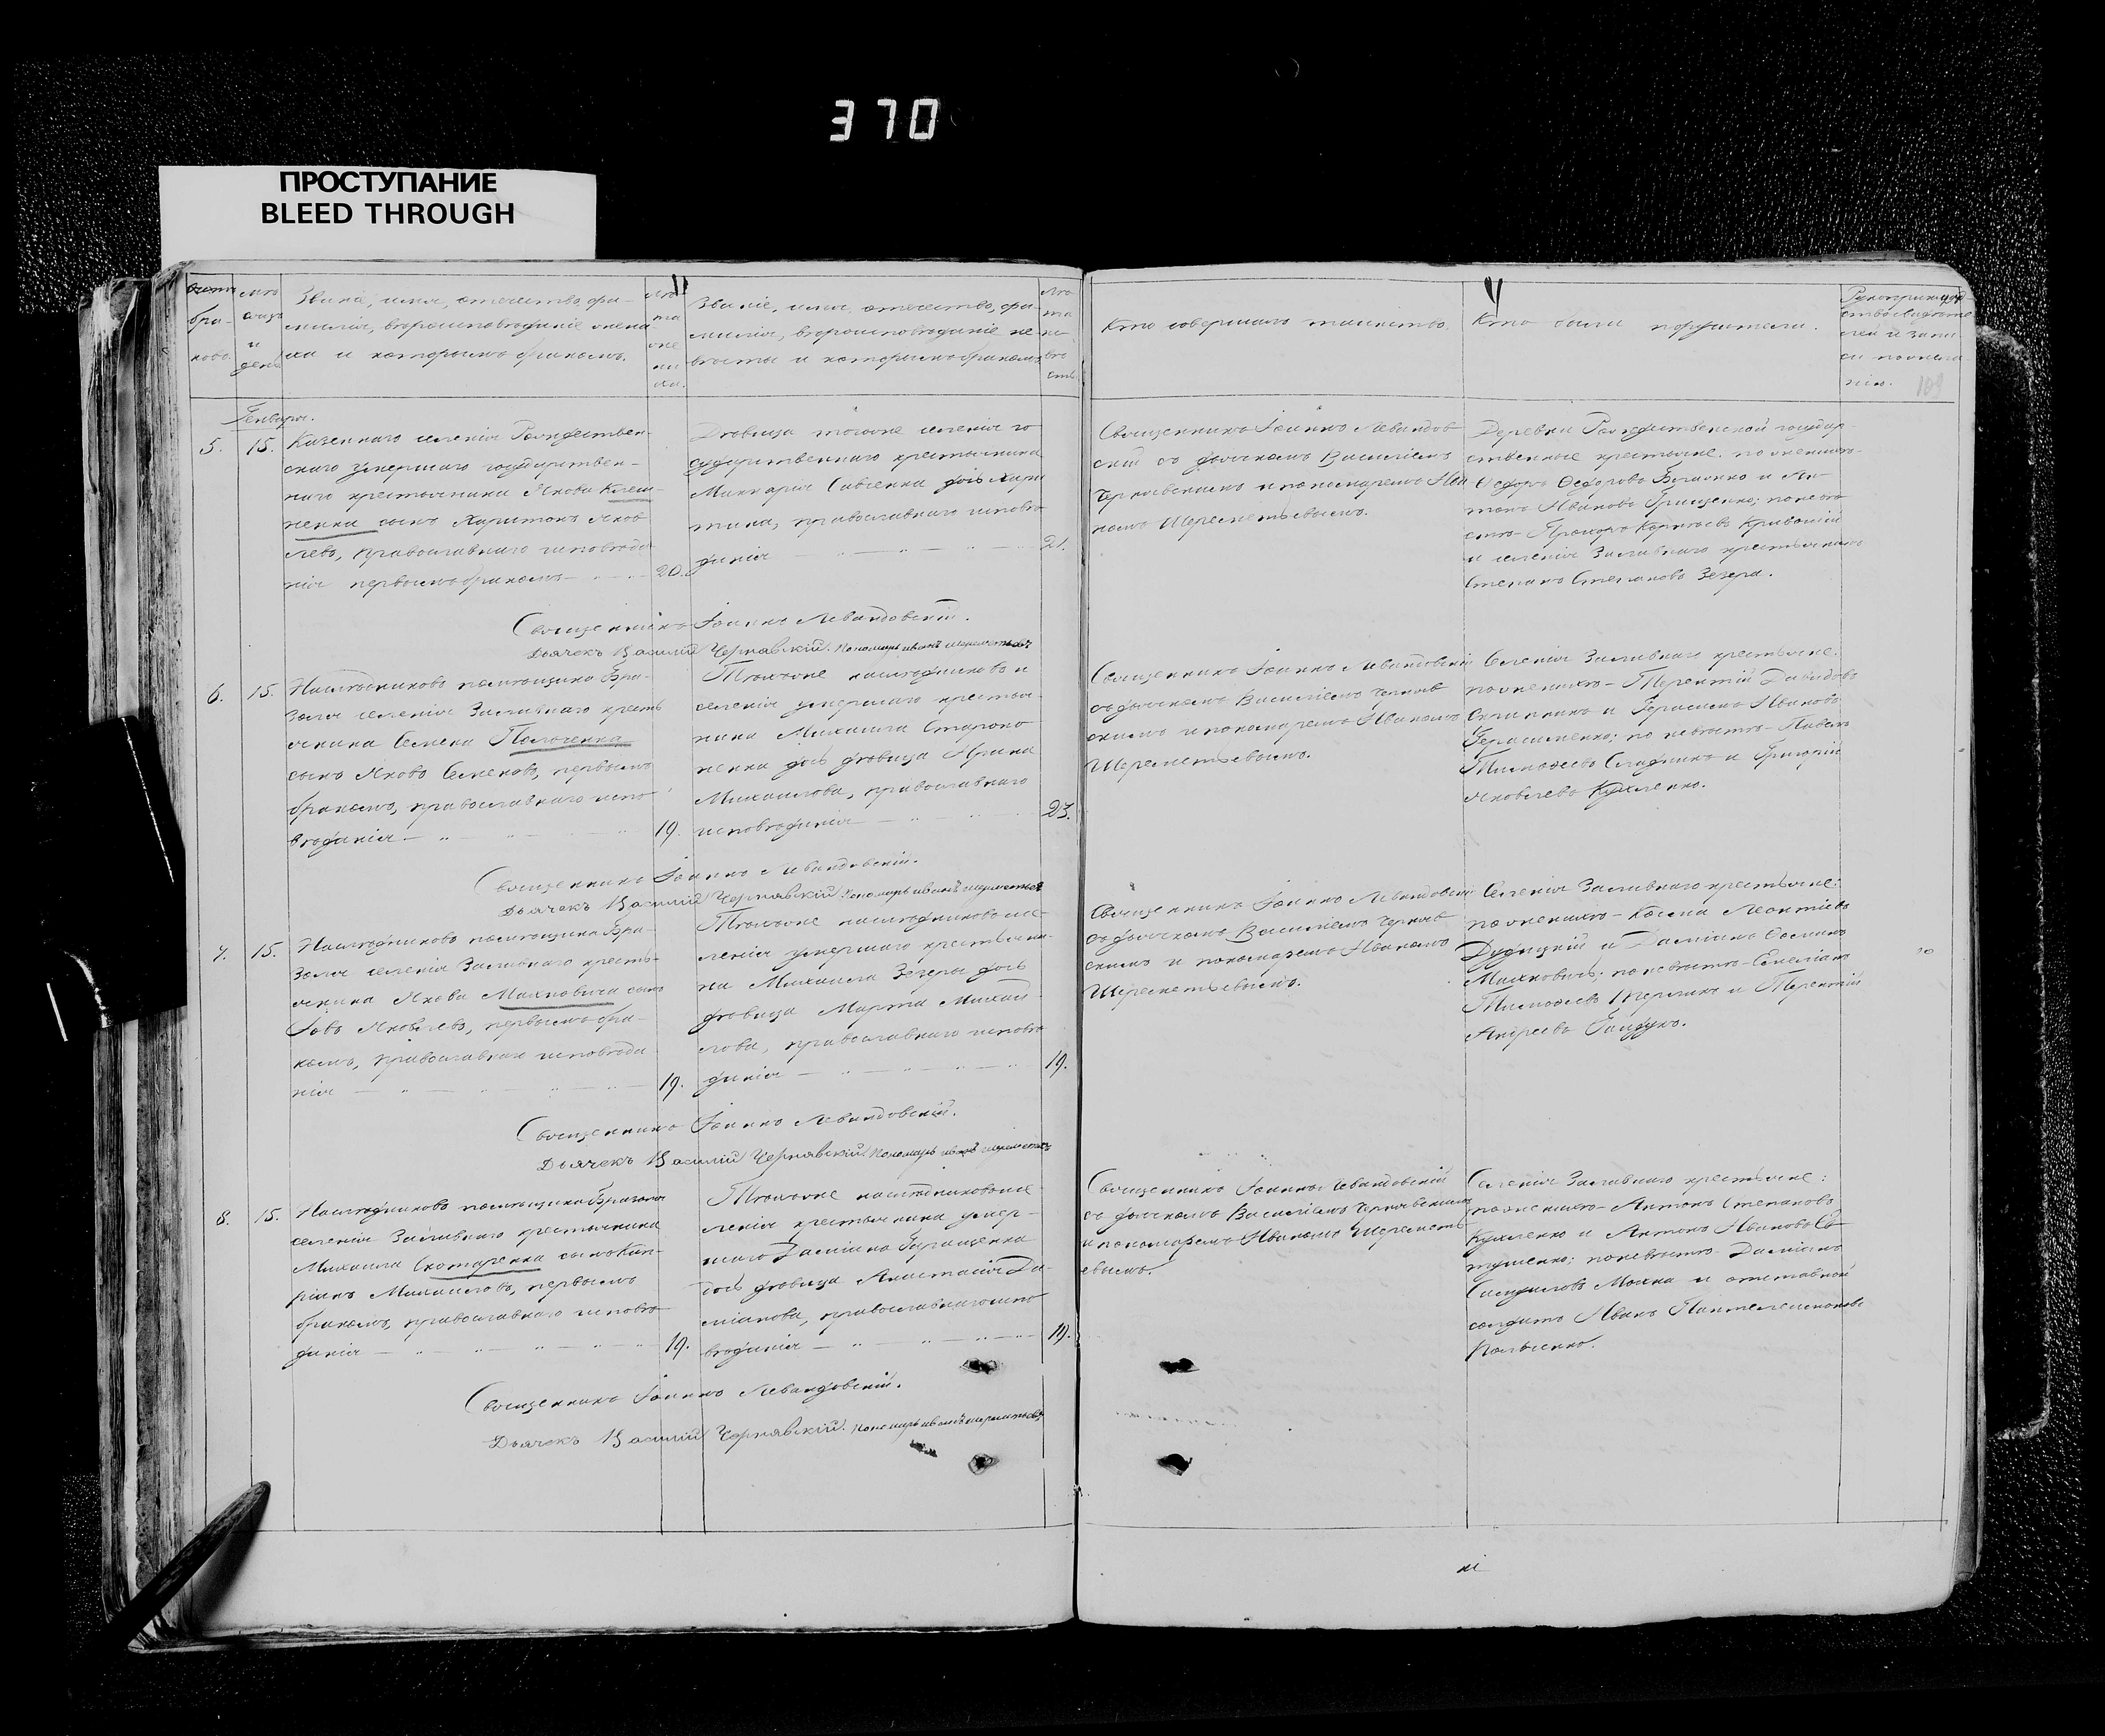 370
ПРОСТУПАНИЕ
BLEED THROUGH
Званіе, имя, отечество, фа-
милія, вѣроисповѣданіе жени-
ха и которымъ бракомъ.
Званіе, имя, отечество, фа-
милія, вѣроисповѣданіе не-
вѣсты и которымъ бракомъ
Кто совершалъ таинство.
Кто были поручители.
169
Генварь.
5.
15.
Казеннаго селенія Рождествен-
скаго умершаго государствен-
наго крестьянина Якова
сынъ Харитонъ Яков
левъ, православнаго исповѣда
нія первымъ бракомъ
20.
Дѣвица тогоже селенія го
сударственнаго крестьянина
Маккарія Савіенка дочь
православнаго исповѣ
данія
21.
Священникъ Іоаннъ Левандов
скій съ дьячкомъ Василіемъ
Чернявскимъ и пономаремъ Ива
номъ Шереметьевымъ.
Деревни Рождественской государ-
ственные крестьяне: по женихѣ-
Ѳедоръ Ѳедоровъ и Ан
тонъ Ивановъ Грищенко; по невѣ
стѣ- Прохоръ
и селенія Заливнаго крестьянинъ
Степанъ Степановъ Зезера.
Священникъ Іоаннъ Левандовскій.
Дьячекъ Василій Чернявскій. Пономарь Иванъ Шереметьевъ
6.
15.
Наслѣдниковъ помѣщика Бра-
золя селенія Заливнаго кресть
янина Семена
сынъ Яковъ Семеновъ, первымъ
бракомъ, православнаго испо
вѣданія
19.
Тѣхъже наслѣдниковъ и
селенія умершаго крестья-
нина Михаила Староко
ненка дочь дѣвица Ирина
Михаилова, православнаго
исповѣданія
23.
Священникъ Іоаннъ Левандовскій
съ дьячкомъ Василіемъ Черняв
скимъ и пономаремъ Иваномъ
Шереметьевымъ.
Селенія Заливнаго крестьяне:
по женихѣ- Терентій Давидовъ
и Герасимъ Ивановъ
Герасименко; по невѣстѣ- Павелъ
Тимоѳеевъ и Григорій
Яковлевъ
Священникъ Іоаннъ Левандовскій.
Дьячекъ Василій Чернявскій Пономарь Иванъ Шереметьевъ
7.
15.
Наслѣдниковъ помѣщика Бра-
золя селенія Заливнаго кресть-
янина Якова Махновича сынъ
Іовъ Яковлевъ, первымъ бра-
комъ, православнаго исповѣда
нія
19.
Тѣхъже наслѣдниковъ се-
ленія умершаго крестьяни-
на Михаила Зезеры дочь
дѣвица Марта Михаи-
лова, православнаго исповѣ
данія
19.
Священникъ Іоаннъ Левандовскій
съ дьячкомъ Василіемъ Черняв
скимъ и пономаремъ Иваномъ
Шереметьевымъ.
Селенія Заливнаго крестьяне:
по женихѣ- Косма Леонтіевъ
Дудицкій и Даміанъ
Махновичъ; по невѣстѣ- Емеліанъ
Тимоѳеевъ и Терентій
Андреевъ Гайдукъ.
Священникъ Іоаннъ Левандовскій.
Дьячекъ Василій Чернявскій. Пономарь Иванъ Шереметьевъ
8.
15.
Наслѣдниковъ помѣщика Бразоля
селенія Заливнаго крестьянина
Михаила Скотаренка сынъ Кип-
ріанъ Михаиловъ, первымъ
бракомъ, православнаго исповѣ
данія
19.
Тѣхъже наслѣдниковъ се-
ленія крестьянина умер-
шаго Даміана
дочь дѣвица Анастасія Да-
міанова, православнаго испо
вѣданія
19.
Священникъ Іоаннъ Левандовскій
съ дьячкомъ Василіемъ Чернявскимъ
и пономаремъ Иваномъ Шереметь
евымъ.
Селенія Заливнаго крестьяне:
по женихѣ- Антонъ Степановъ
и Антонъ Ивановъ
по невѣстѣ- Даміанъ
и отставной
солдатъ Иванъ Пантелеимоновъ
Священникъ Іоаннъ Левандовскій.
Дьячекъ Василій Чернявскій. Пономарь Иванъ Шереметьевъ